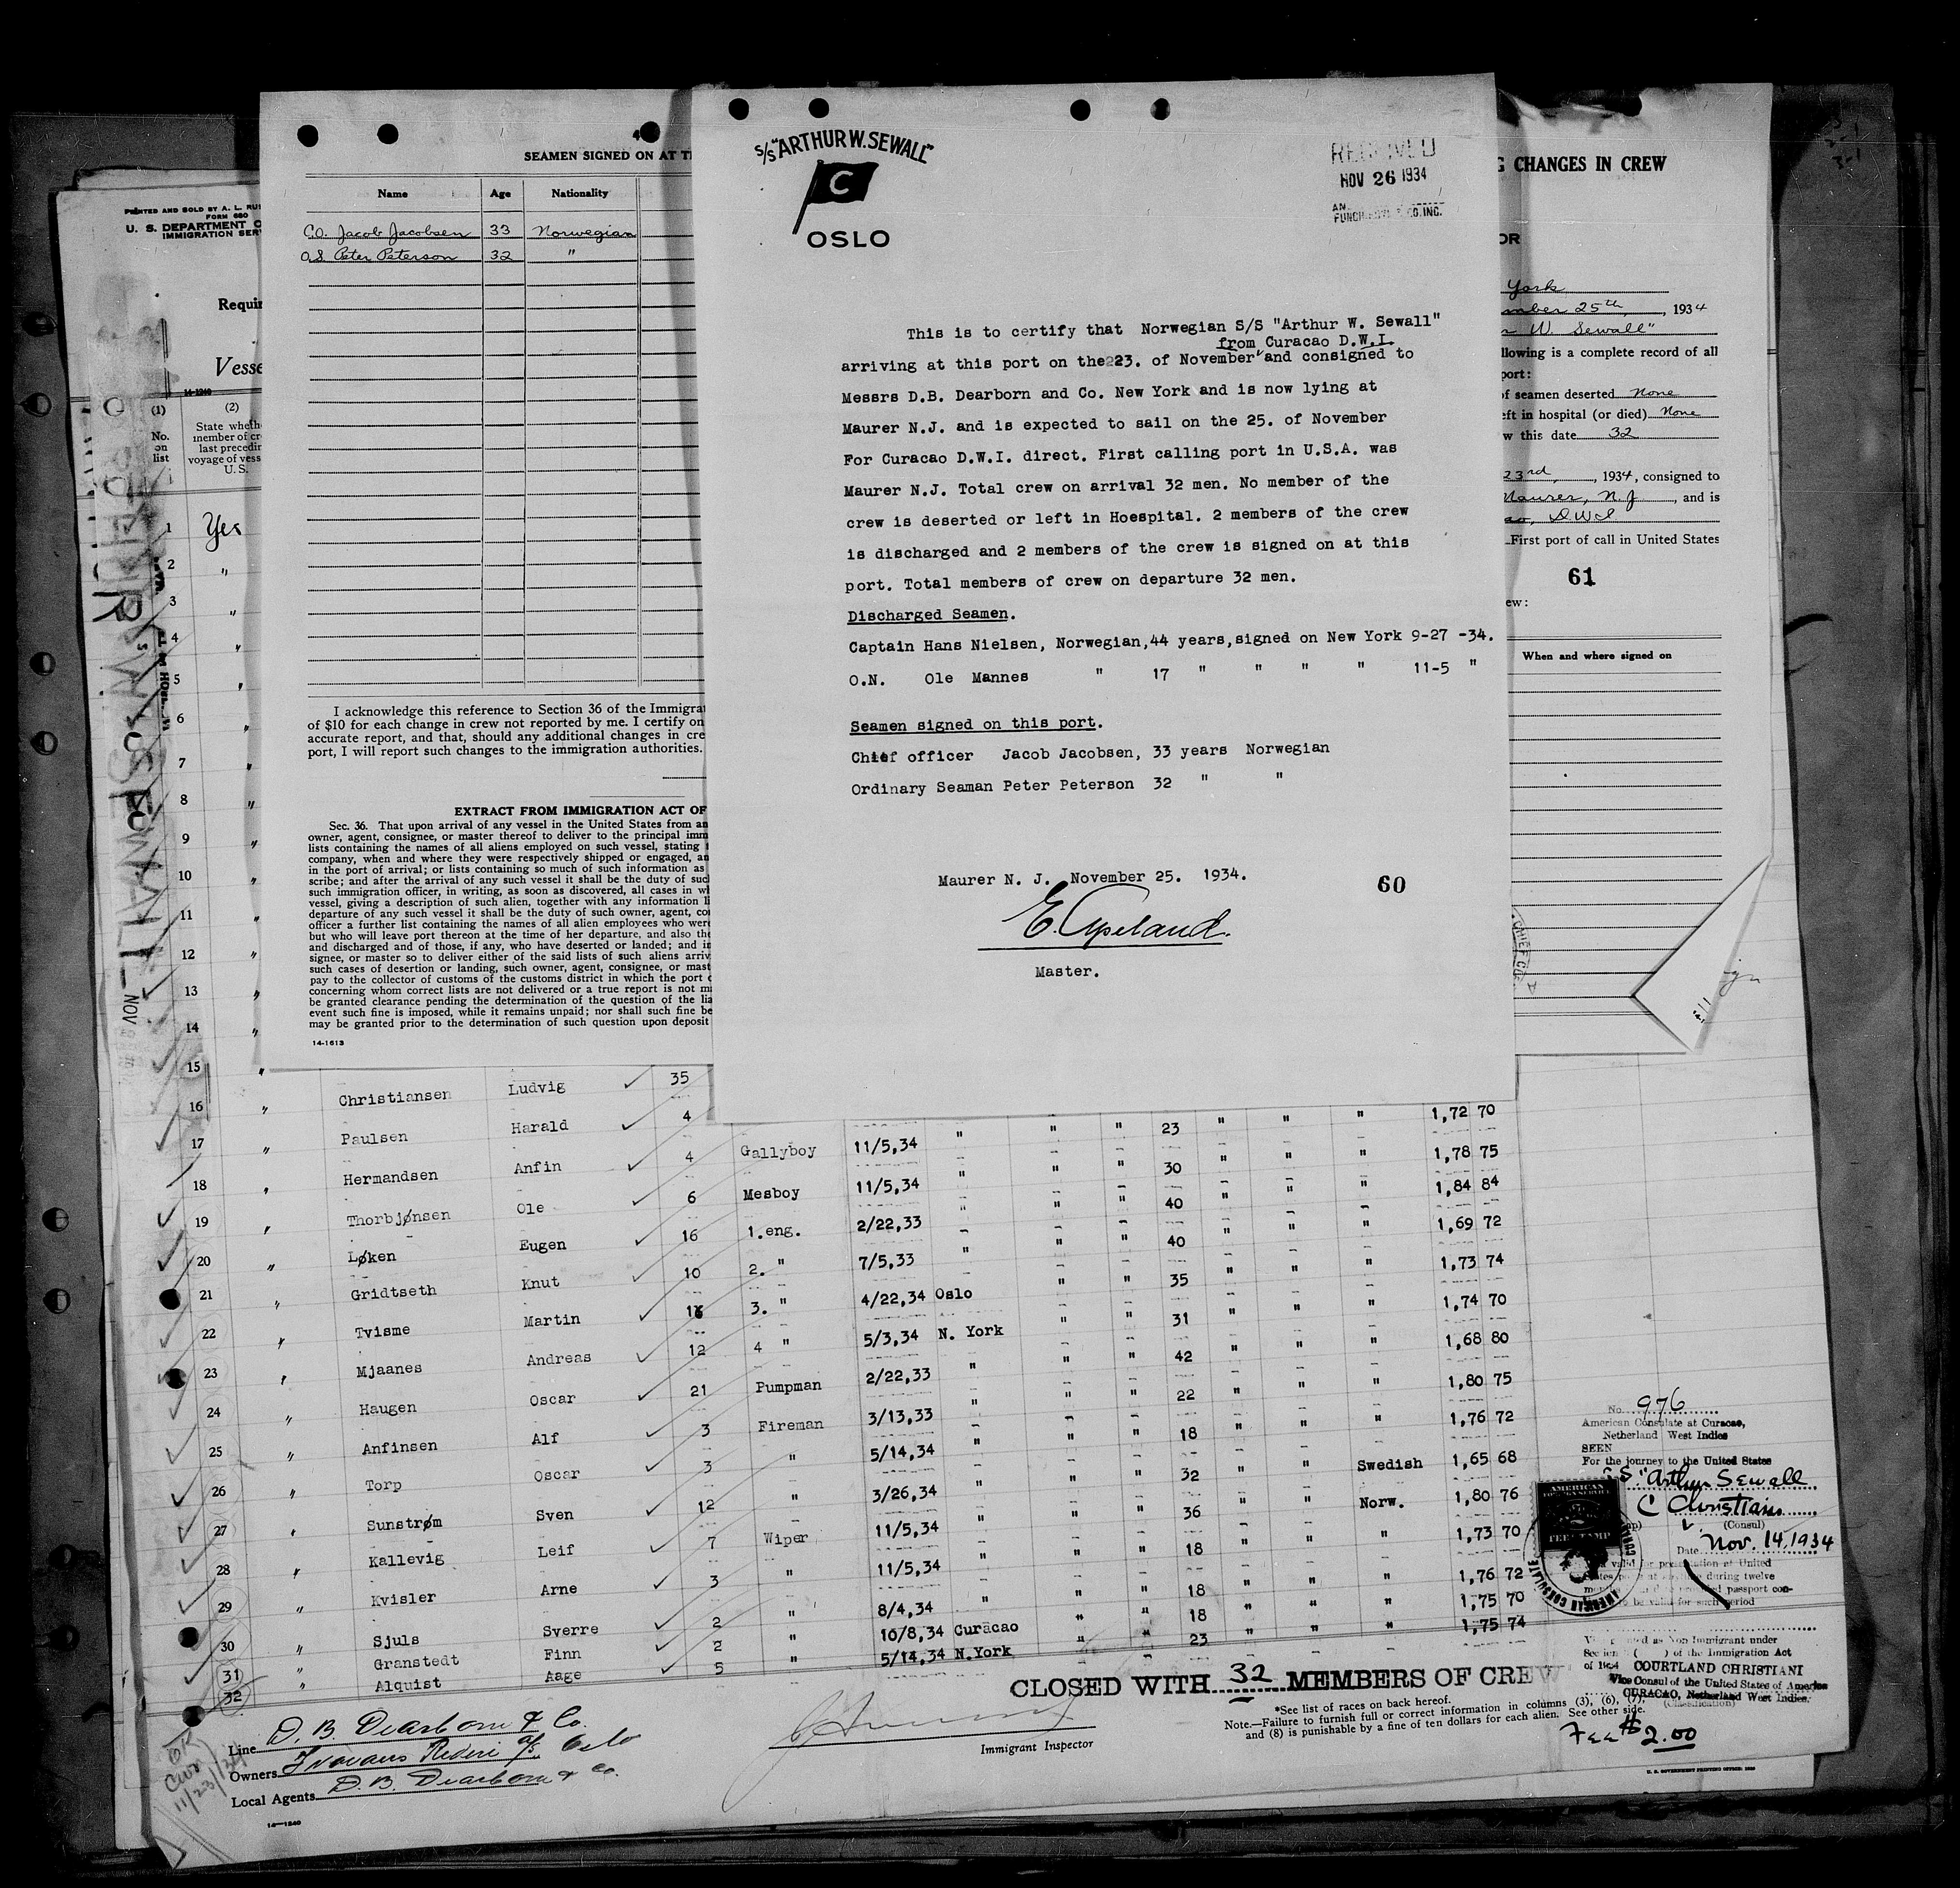 S/S "ARTHUR W. SEWALL"
C
OSLO
RECEIVED
NOV 26 1934
This is to certify that Norwegian S/S "Arthur W. Sewall"
from Curacao D.W.I.
arriving at this port on the 23. of November and consigned to
Messrs D.B. Dearborn and Co. New York and is now lying at
Maurer N.J. and is expected to sail on the 25. of November
For Curacao D.W.I. direct. First calling port in U.S.A. was
Maurer N.J. Total crew on arrival 32 men. No member of the
crew is deserted or left in Hoespital. 2 members of the crew
is discharged and 2 members of the crew is signed on at this
port. Total members of crew on departure 32 men.
Discharged Seamen.
Captain Hans Nielsen, Norwegian, 44 years, signed on New York 9-27 -34.
O.N. Ole Mannes " 17 " " " " 11-5 "
Seamen signed on this port.
Chief officer Jacob Jacobsen, 33 years Norwegian
Ordinary Seaman Peter Peterson 32 " "
Maurer N. J. November 25. 1934.
60
Master.
SEAMEN SIGNED ON AT
Name Age Nationality
C.O. Jacob Jacobsen 33 Norwegian
O.S. Peter Peterson 32 "
I acknowledge this reference to Section 36 of the
of $10 for each change in crew not reported by me. I certify on
accurate report, and that, should any additional changes in
port, I will report such changes to the immigration authorities.
EXTRACT FROM IMMIGRATION ACT OF
Sec. 36. That upon arrival of any vessel in the United States from
owner, agent, consignee, or master thereof to deliver to the principal
lists containing the names of all aliens employed on such vessel, stating
company, when and where they were respectively shipped or engaged,
in the port of arrival; or lists containing so much of such information as
scribe; and after the arrival of any such vessel it shall be the duty of
such immigration officer, in writing, as soon as discovered, all cases in
vessel, giving a description of such alien, together with any information
departure of any such vessel it shall be the duty of such owner, agent,
officer a further list containing the names of all alien employees who were
but who will leave port thereon at the time of her departure, and also
and discharged and of those, if any, who have deserted or landed; and
signee, or master so to deliver either of the said lists of such aliens
such cases of desertion or landing, such owner, agent, consignee, or
pay to the collector of customs of the customs district in which the port
concerning whom correct lists are not delivered or a true report is not
be granted clearance pending the determination of the question of the
event such fine is imposed, while it remains unpaid; nor shall such fine be
may be granted prior to the determination of such question upon deposit
14-1613
CHANGES IN CREW
York
25th, 1934
W. Sewall"
is a complete record of all
port:
of seamen deserted None
in hospital (or died) None
this date 32
23rd, 1934, consigned to
Maurer, N.J., and is
D.W.I
First port of call in United States
61
When and where signed on
PRINTED AND SOLD BY A. L.
FORM 680
U. S. DEPARTMENT
IMMIGRATION
14-1240
(1) (2)
No. on list
State
member of
last
voyage of
U.S.
1 Yes
2 "
3 "
4 "
5 "
6 "
7 "
8 "
9 "
10 "
11 "
12 "
13 "
14 "
15 "
16 " Christiansen Ludvig 35
17 " Paulsen Harald 4 Gallyboy 11/5,34 " " " 23 " " " 1,72 70
18 " Hermandsen Anfin 4 Mesboy 11/5,34 " " " 30 " " " 1,78 75
19 " Thorbjønsen Ole 6 1.eng. 2/22,33 " " " 40 " " " 1,84 84
20 " Løken Eugen 16 2. " 7/5,33 " " " 40 " " " 1,69 72
21 " Gridtseth Knut 10 3. " 4/22,34 Oslo " " 35 " " " 1,73 74
22 " Tvisme Martin 4 " 5/3,34 N. York " " 31 " " " 1,74 70
23 " Mjaanes Andreas 12 Pumpman 2/22,33 " " " 42 " " " 1,68 80
24 " Haugen Oscar 21 Fireman 3/13,33 " " " 22 " " " 1,80 75
25 " Anfinsen Alf 3 " 5/14,34 " " " 18 " " " 1,76 72
26 " Torp Oscar 3 " 3/26,34 " " " 32 " " Swedish 1,65 68
27 " Sunstrøm Sven 12 Wiper 11/5,34 " " " 36 " " Norw. 1,80 76
28 " Kallevig Leif 7 " 11/5,34 " " " 18 " " " 1,73 70
29 " Kvisler Arne 3 " 8/4,34 " " " 18 " " " 1,76 72
30 " Sjuls Sverre 2 " 10/8,34 Curacao " " 18 " " " 1,75 70
31 " Granstedt Finn 2 " 5/14,34 N.York " " 23 " " " 1,75 74
32 " Alquist Aage 5
CLOSED WITH 32 MEMBERS OF CREW
*See list of races on back hereof.
Note.—Failure to furnish full or correct information in columns (3), (6), (7),
and (8) is punishable by a fine of ten dollars for each alien. See other side.
Immigrant Inspector
Line D. B. Dearborn & Co.
Owners Rederi A/S. Oslo
Local Agents D. B. Dearborn & Co.
14—1240
OK
11/23/34
No. 976
American Consulate at Curacao,
Netherland West Indies
SEEN
For the journey to the United States
S.S. "Arthur Sewall
C Christiani
(Consul)
Date Nov. 14, 1934
AMERICAN CONSULATE
of the Immigration Act
COURTLAND CHRISTIANI
Vice Consul of the United States of America
CURACAO, Netherland West Indies.
Fee $2.00
U. S. GOVERNMENT PRINTING OFFICE